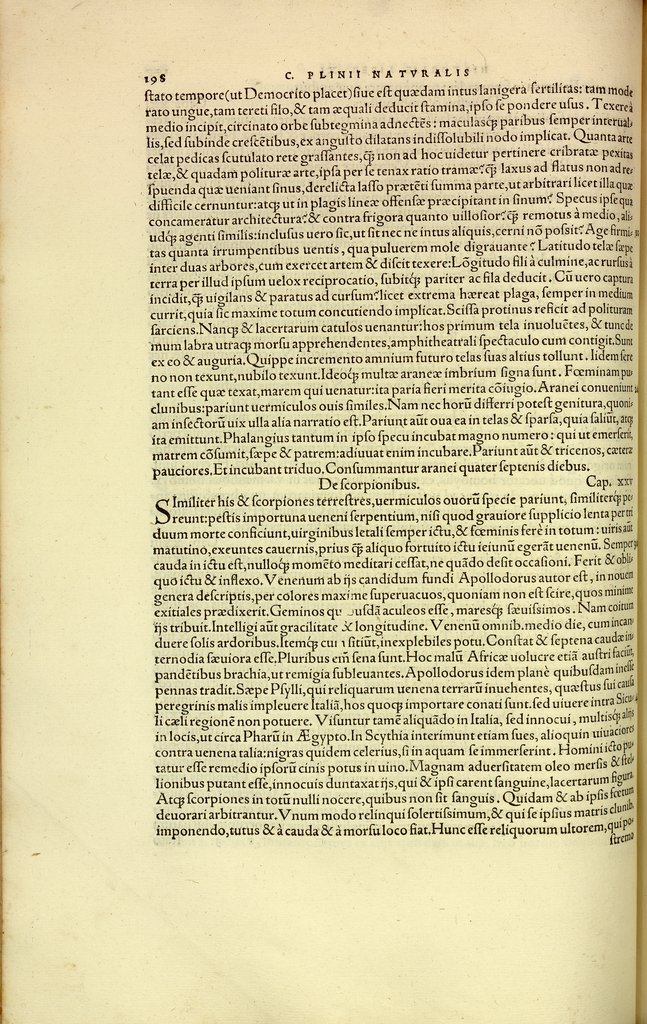 198 C. PLINII NATVRALIS
stato tempore(ut Democrito placet)siue est quædam intus lanigera fertilitas: tam mode
rato ungue,tam tereti filo,& tam æquali deducit stamina,ipso se pondere usus. Texere à
medio incipit,circinato orbe subtegmina adnectẽs: maculasq́ꝫ paribus semper interual⸗
lis,sed subinde crescẽtibus,ex angusto dilatans indissolubili nodo implicat. Quanta arte
celat pedicas scutulato rete grassantes,q̃ꝫ non ad hoc uidetur pertinere cribratæ pexitas
telæ,& quadam polituræ arte,ipsa per se tenax ratio tramæ?q̃ꝫ laxus ad flatus non ad re⸗
spuenda quæ ueniant sinus,derelicta lasso prætẽti summa parte,ut arbitrari licet illa quæ
difficile cernuntur:atq́ꝫ ut in plagis lineæ offensæ præcipitant in sinum? Specus ipse qua
concameratur architectura?& contra frigora quanto uillosior?q̃ꝫ remotus à medio,ali⸗
udq́ꝫ agenti similis:inclusus uero sic,ut sit nec ne intus aliquis,cerni nõ possit? Age firmi⸗
tas quanta irrumpentibus uentis, qua puluerem mole digrauante? Latitudo telæ sæpe
inter duas arbores,cum exercet artem & discit texere:Lõgitudo fili à culmine,ac rursus à
terra per illud ipsum uelox reciprocatio, subitq́ꝫ pariter ac fila deducit. Cũ uero captura
incidit,q̃ꝫ uigilans & paratus ad cursum?licet extrema hæreat plaga, semper in medium
currit,quia sic maxime totum concutiendo implicat.Scissa protinus reficit ad polituram
sarciens.Nanq́ꝫ & lacertarum catulos uenantur:hos primum tela inuoluẽtes, & tunc de
mum labra utraq́ꝫ morsu apprehendentes,amphitheatrali spectaculo cum contigit.Sunt
ex eo & auguria. Quippe incremento amnium futuro telas suas altius tollunt. Iidem sere
no non texunt,nubilo texunt.Ideoq́ꝫ multæ araneæ imbrium signa sunt. Fœminam pu⸗
tant esse quæ texat,marem qui uenatur:ita paria fieri merita cõiugio. Aranei conueniunt
clunibus:pariunt uermiculos ouis similes.Nam nec horũ differri potest genitura,quoni⸗
am insectorũ uix ulla alia narratio est.Pariunt aũt oua ea in telas & sparsa, quia saliũt, atq́ꝫ
ita emittunt.Phalangius tantum in ipso specu incubat magno numero : qui ut emerserit,
matrem cõsumit,sæpe & patrem:adiuuat enim incubare.Pariunt aũt & tricenos, cætera
pauciores.Et incubant triduo.Consummantur aranei quater septenis diebus.
De scorpionibus. Cap. xxv
SImiliter his & scorpiones terrestres,uermiculos ouorũ specie pariunt, similiterq́ꝫ pe⸗
reunt:pestis importuna ueneni serpentium, nisi quod grauiore supplicio lenta per tri
duum morte conficiunt,uirginibus letali semper ictu,& fœminis ferè in totum : uiris aũt
matutino,exeuntes cauernis,prius q̃ꝫ aliquo fortuito ictu ieiunũ egerãt uenenũ. Semper
cauda in ictu est,nulloq́ꝫ momẽto meditari cessat,ne quãdo desit occasioni. Ferit & obli⸗
quo ictu & inflexo. Venenum ab ijs candidum fundi Apollodorus autor est, in nouem
genera descriptis,per colores maxime superuacuos, quoniam non est scire,quos minime
exitiales prædixerit.Geminos quibusdã aculeos esse, maresq́ꝫ sæuissimos. Nam coitum
ijs tribuit.Intelligi aũt gracilitate & longitudine. Venenũ omnib. medio die, cum incan⸗
duere solis ardoribus.Itemq́ꝫ cum sitiũt,inexplebiles potu.Constat & septena caudæ in⸗
ternodia sæuiora esse.Pluribus em̃ sena sunt.Hoc malũ Africæ uolucre etiã austri faciũt,
pandẽtibus brachia,ut remigia subleuantes.Apollodorus idem planè quibusdam inesse
pennas tradit.Sæpe Psylli,qui reliquarum uenena terrarũ inuehentes, quæstus sui causa
peregrinis malis impleuere Italiã,hos quoq́ꝫ importare conati sunt.sed uiuere intra Sicu⸗
li cæli regionẽ non potuere. Visuntur tamẽ aliquãdo in Italia, sed innocui, multisq́ꝫ alijs
in locis,ut circa Pharũ in Ægypto.In Scythia interimunt etiam sues, alioquin uiuaciores
contra uenena talia:nigras quidem celerius,si in aquam se immerserint. Homini icto pu⸗
tatur esse remedio ipsorũ cinis potus in uino. Magnam aduersitatem oleo mersis & stel⸗
lionibus putant esse,innocuis duntaxat ijs,qui & ipsi carent sanguine,lacertarum figura.
Atq́ꝫ scorpiones in totũ nulli nocere,quibus non sit sanguis. Quidam & ab ipsis fœtum
deuorari arbitrantur.Vnum modo relinqui solertissimum,& qui se ipsius matris clunib.
imponendo,tutus & à cauda & à morsu loco fiat.Hunc esse reliquorum ultorem,qui po⸗
stremo